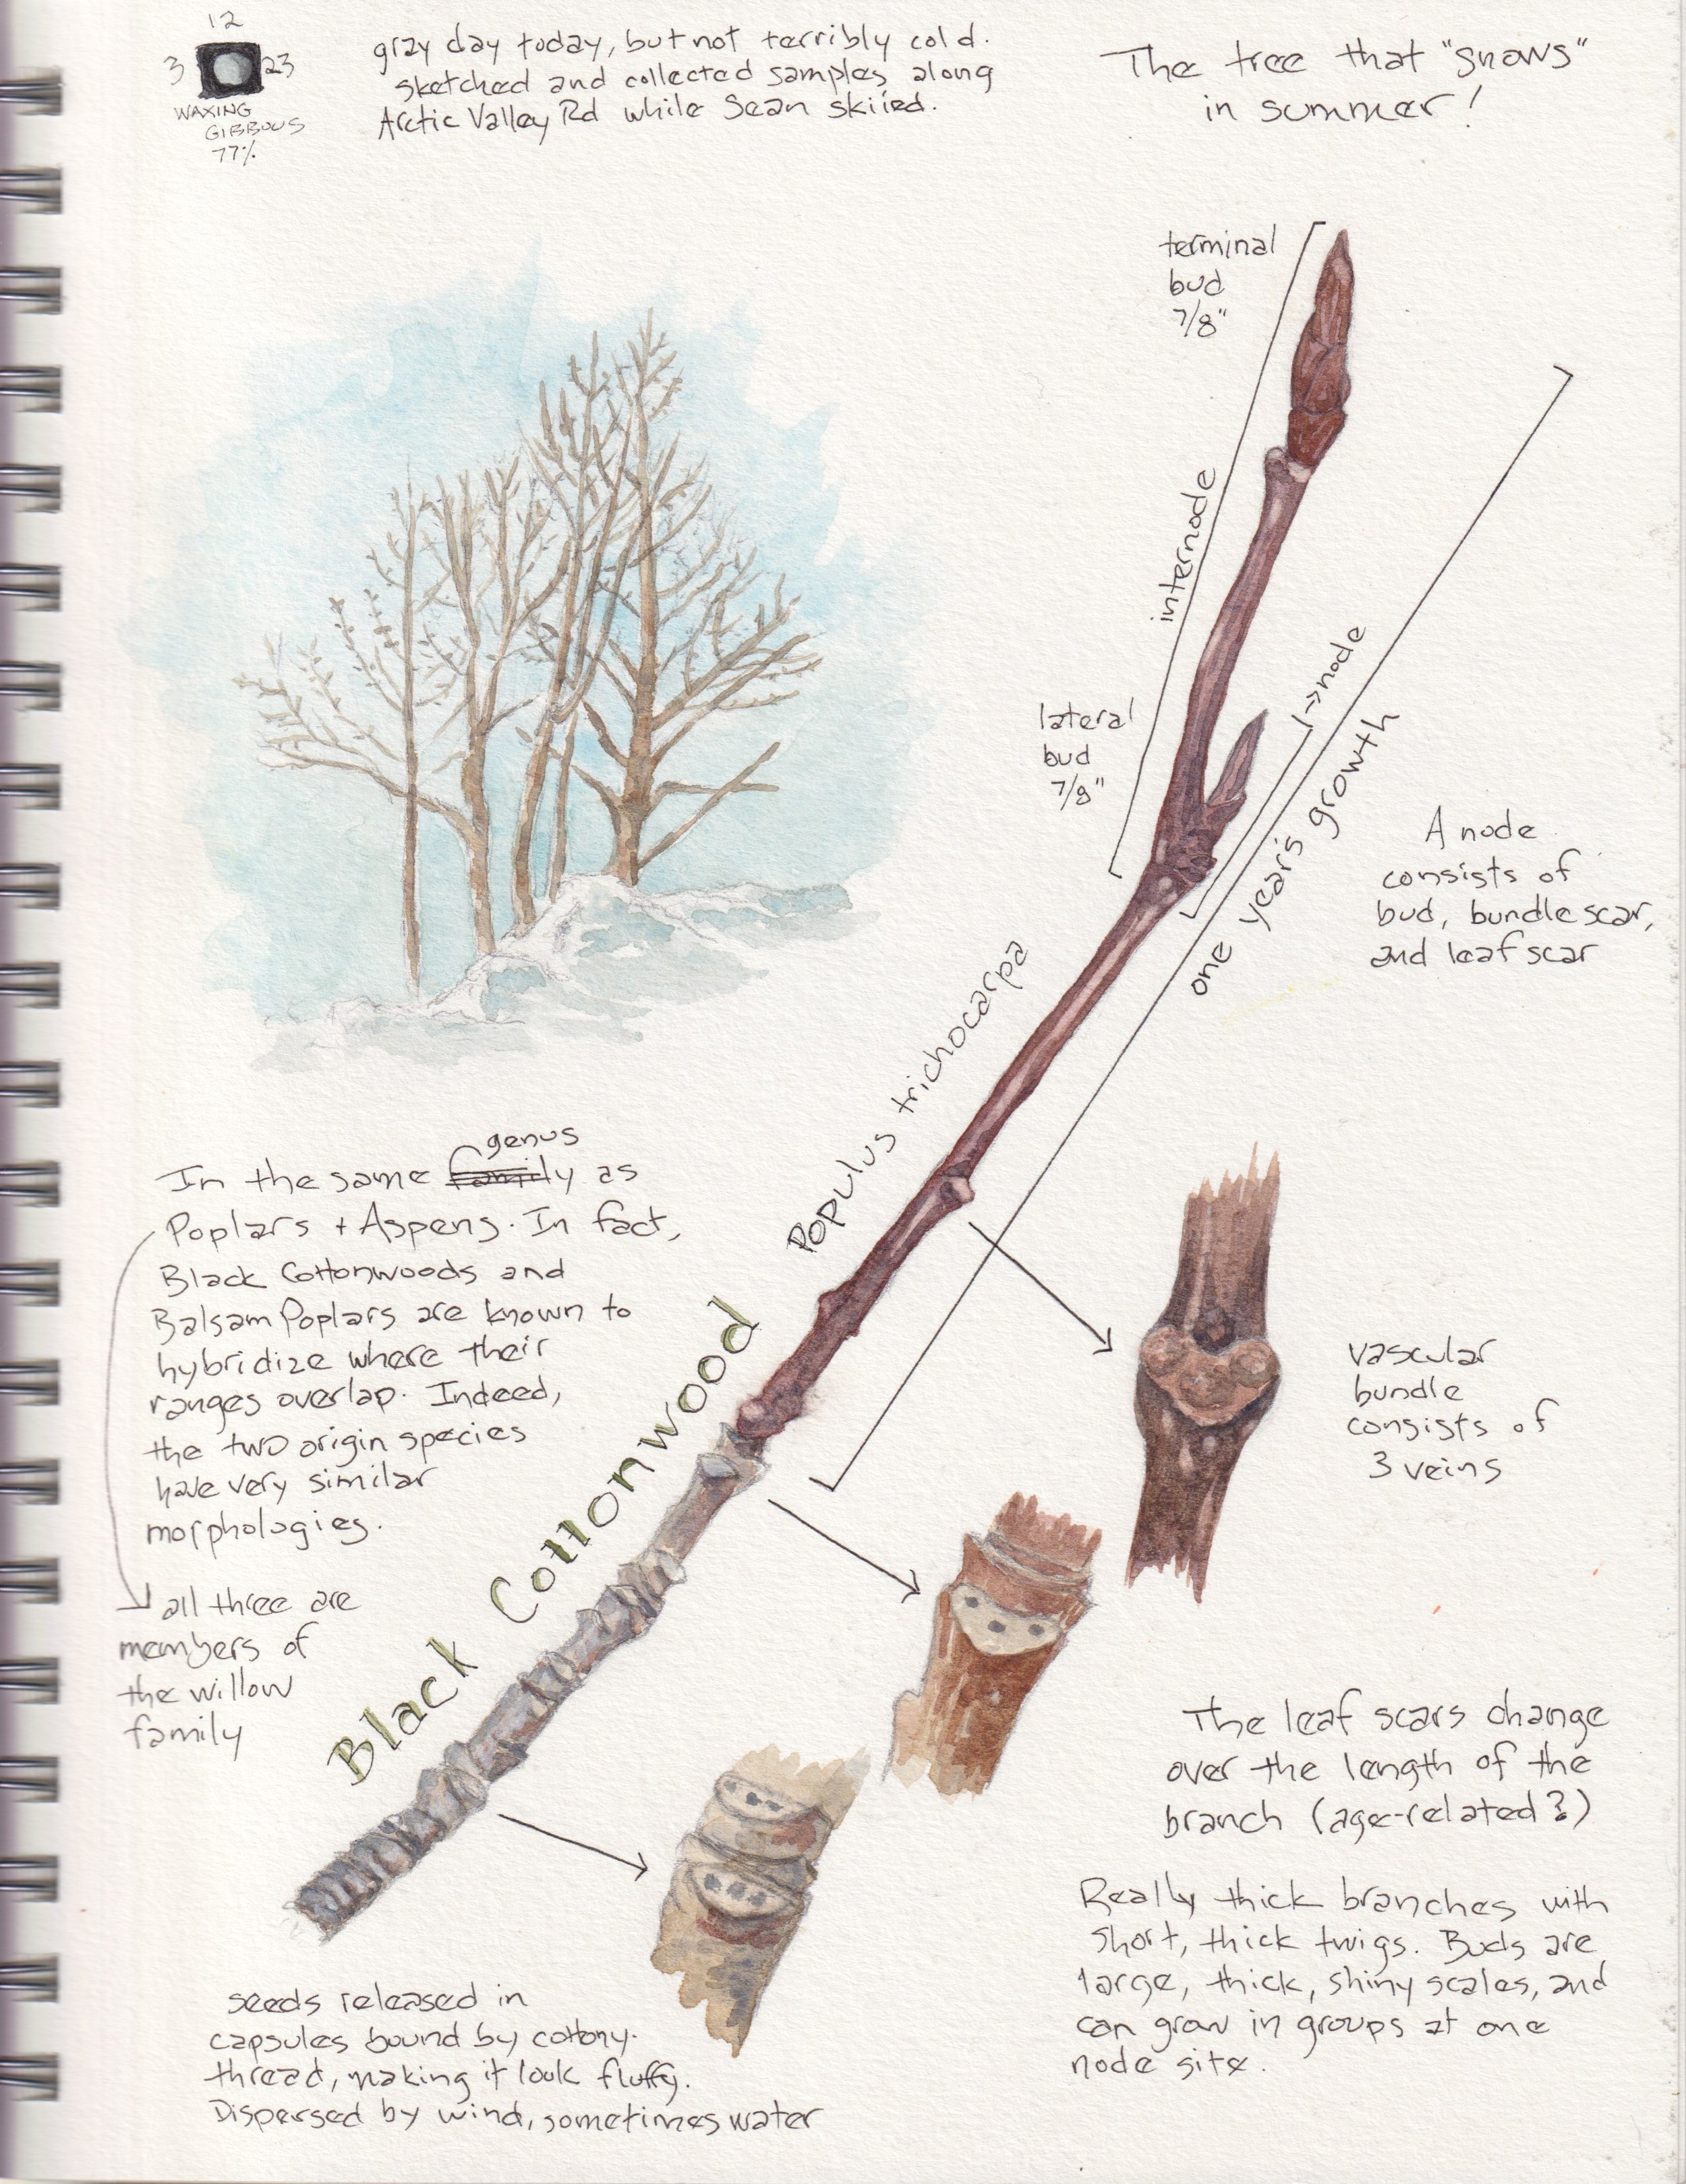 12
3 23
WAXING
GIBBOUS
77%
gray day today, but not terribly cold.
sketched and collected samples along
Arctic Valley Rd while Sean skiied.
The tree that "snows"
in summer!
terminal
bud
7/8"
internode
lateral
bud
7/8"
node
one year's growth
A node
consists of
bud, bundle scar,
and leaf scar
Populus trichocarpa
Black Cottonwood
genus
In the same family as
Poplars + Aspens. In fact,
Black Cottonwoods and
Balsam Poplars are known to
hybridize where their
ranges overlap. Indeed,
the two origin species
have very similar
morphologies.
all three are
members of
the willow
family
vascular
bundle
consists of
3 veins
The leaf scars change
over the length of the
branch (age-related?)
Really thick branches with
short, thick twigs. Buds are
large, thick, shiny scales, and
can grow in groups at one
node site.
seeds released in
capsules bound by cottony
thread, making it look fluffy.
Dispersed by wind, sometimes water